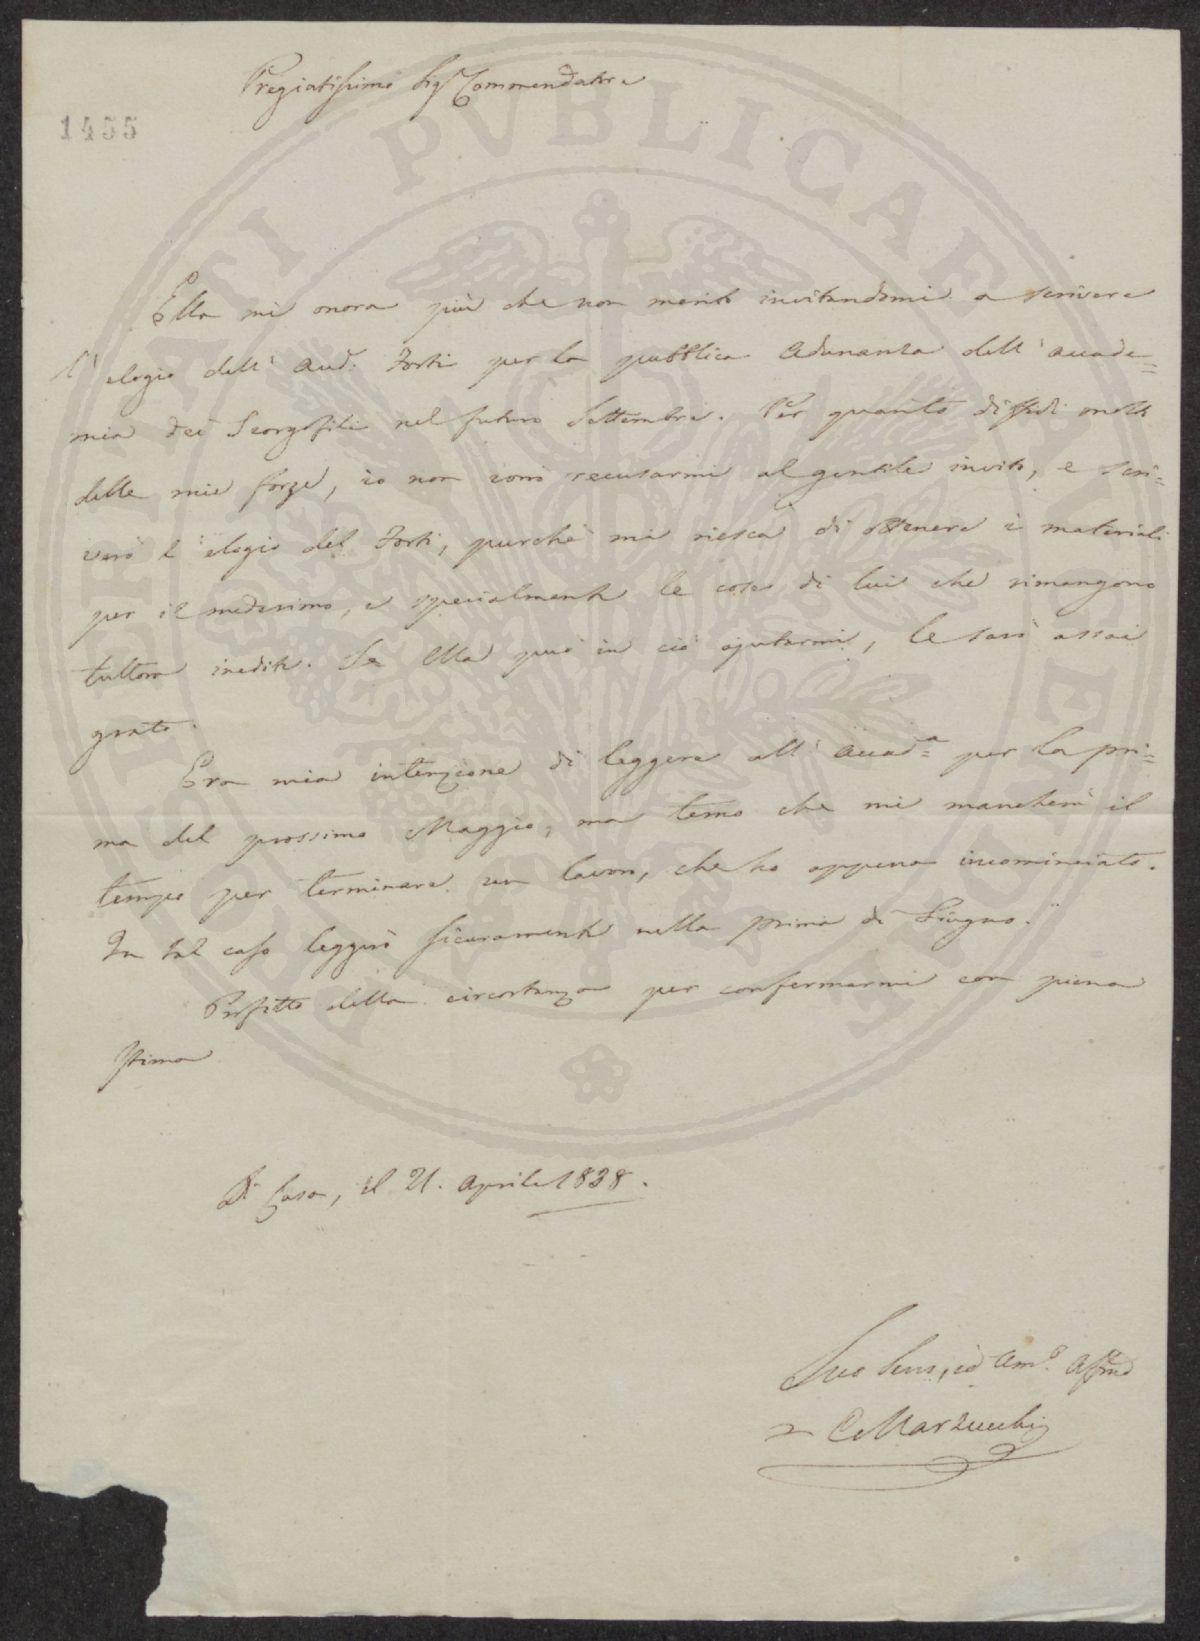 Pregiatissimo Sigr Commendatore
1455
Ella mi onora più che non merito invitandomi a scrivere
l'elogio dell' Aud. Forti per la pubblica adunanza dell' Accade=
mia dei Georgofili nel futuro Settembre. Per quanto diffidi molto
delle mie forze, io non vorrò recusarmi al gentile invito, e scri=
verò l'elogio del Forti, purchè mi riesca di ottenere i materiali
per il medesimo, e specialmente le cose di lui che rimangono
tuttora inedite. Se Ella può in ciò ajutarmi, le sarò assai
grato.
Era mia intenzione di leggere all' Accada per la pri=
ma del prossimo Maggio, ma temo che mi mancherà il
tempo per terminare un lavoro, che ho appena incominciato.
In tal caso leggerò sicuramente nella prima di Giugno.
Profitto della circostanza per confermarmi con piena
stima
Di Casa, il 21. Aprile 1838.
Suo Serv, ed Amo. Affmo
C Marzucchi